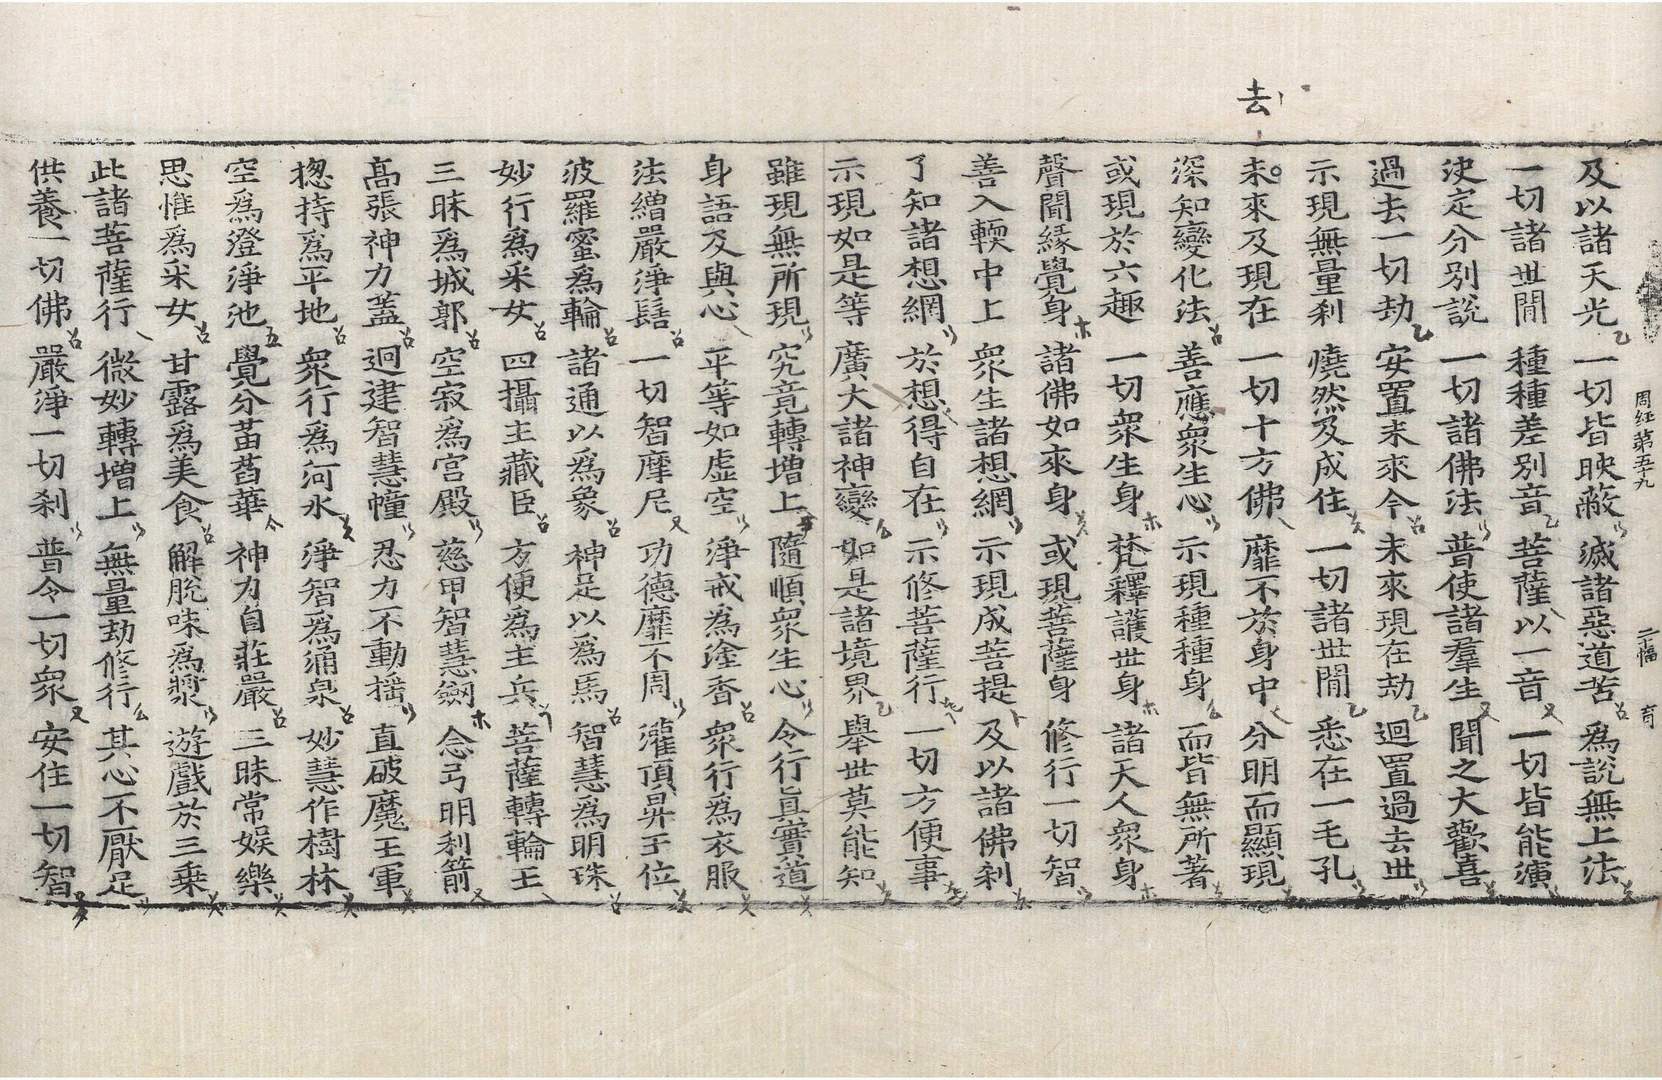 周経第五十九 二幅 育
及以諸天光 一切皆映蔽 滅諸惡道苦 爲說無上法
一切諸世間 種種差別音 菩薩以一音 一切皆能演
決定分別說 一切諸佛法 普使諸羣生 聞之大歡喜
過去一切劫 安置未來今 未來現在劫 迴置過去世
示現無量刹 燒然及成住 一切諸世間 悉在一毛孔
去
未來及現在 一切十方佛 靡不於身中 分明而顯現
深知變化法 善應衆生心 示現種種身 而皆無所著
或現於六趣 一切衆生身 梵釋護世身 諸天人衆身
聲聞緣覺身 諸佛如來身 或現菩薩身 修行一切智
善入輭中上 衆生諸想網 示現成菩提 及以諸佛刹
了知諸想網 於想得自在 示修菩薩行 一切方便事
示現如是等 廣大諸神變 如是諸境界 舉世莫能知
雖現無所現 究竟轉增上 隨順衆生心 令行眞實道
身語及與心 平等如虛空 淨戒爲塗香 衆行爲衣服
法繒嚴淨髻 一切智摩尼 功德靡不周 灌頂昇王位
波羅蜜爲輪 諸通以爲象 神足以爲馬 智慧爲明珠
妙行爲采女 四攝主藏臣 方便爲主兵 菩薩轉輪王
三昧爲城郭 空寂爲宮殿 慈甲智慧劒 念弓明利箭
高張神力蓋 迥建智慧幢 忍力不動搖 直破魔王軍
揔持爲平地 衆行爲河水 淨智爲涌泉 妙慧作樹林
空爲澄淨池 覺分菡萏華 神力自莊嚴 三昧常娛樂
思惟爲采女 甘露爲美食 解脫味爲漿 遊戲於三乘
此諸菩薩行 微妙轉增上 無量劫修行 其心不厭足
供養一切佛 嚴淨一切刹 普令一切衆 安住一切智